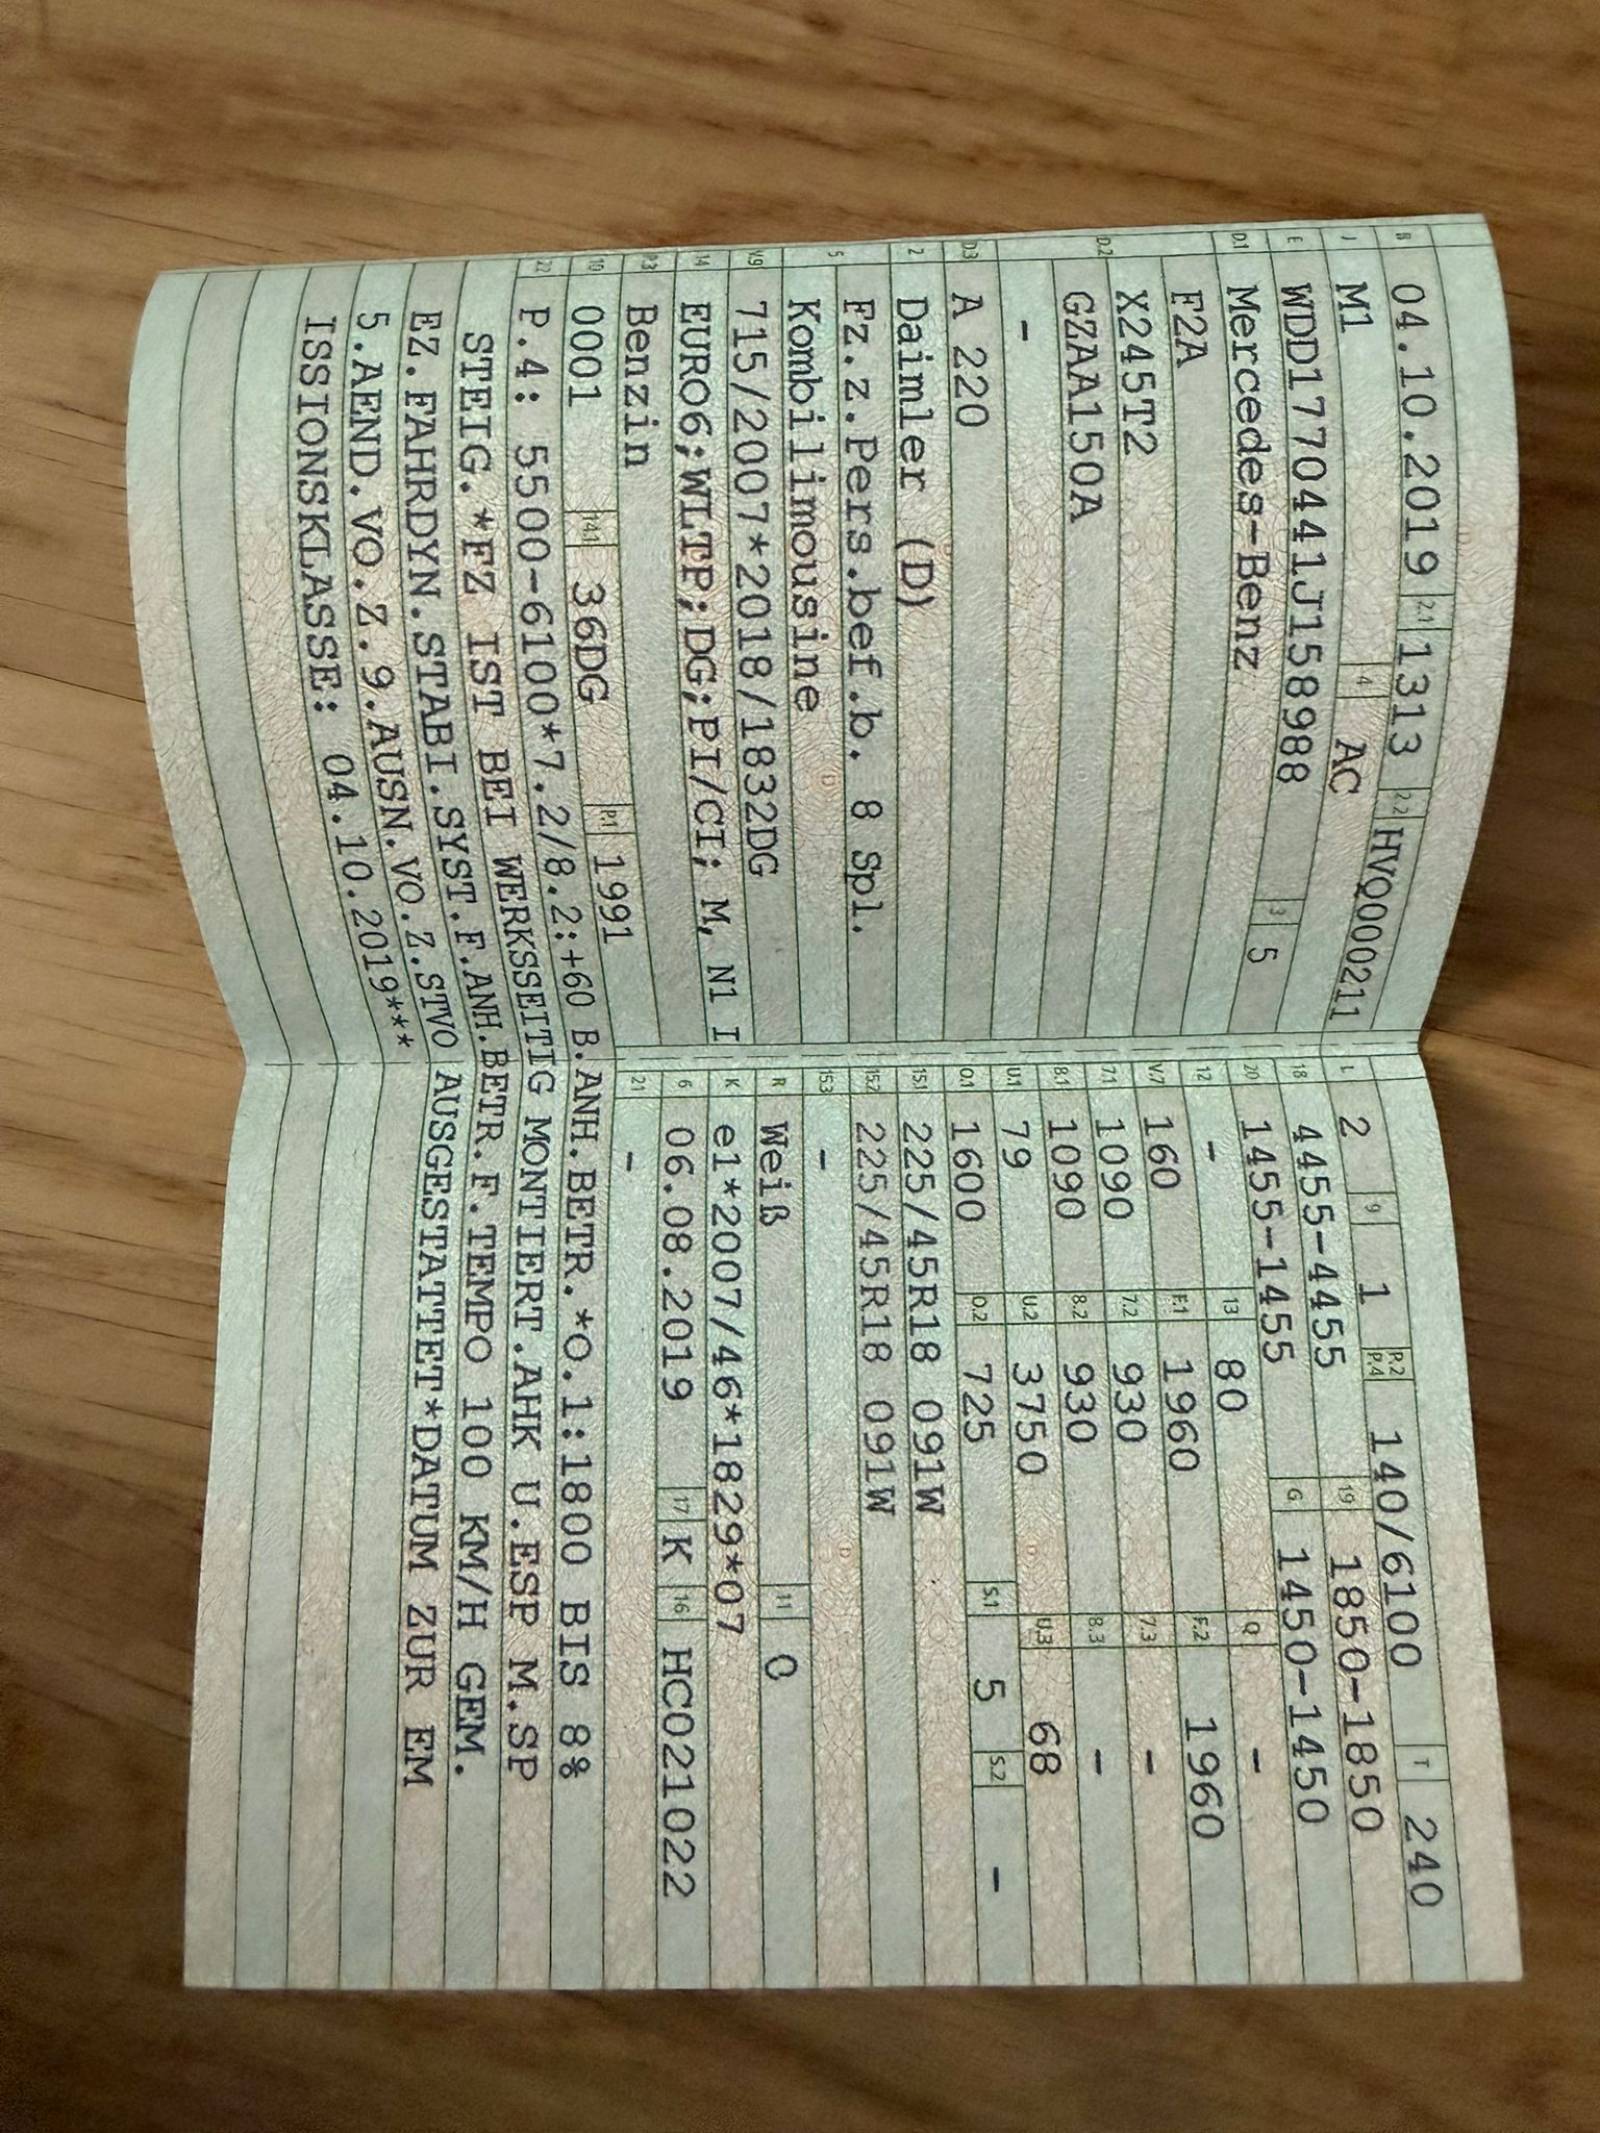 B 04.10.2019 2.1 1313 2.2 HVQ000211
J M1 4 AC
E WDD1770441J158988 3 5
D.1 Mercedes-Benz
D.2 F2A
X245T2
GZAA150A
-
D.3 A 220
2 Daimler (D)
5 Fz.z.Pers.bef.b. 8 Spl.
Kombilimousine
V.9 715/2007*2018/1832DG
14 EURO6;WLTP;DG;PI/CI; M, N1 I
P.3 Benzin
10 0001 14.1 36DG P.1 1991
L 2 9 1 P.2 P.4 140/6100 T 240
18 4455-4455 19 1850-1850
20 1455-1455 G 1450-1450
12 - 13 80 Q -
V.7 160 F.1 1960 F.2 1960
7.1 1090 7.2 930 7.3 -
8.1 1090 8.2 930 8.3 -
U.1 79 U.2 3750 U.3 68
O.1 1600 O.2 725 S.1 5 S.2 -
15.1 225/45R18 091W
15.2 225/45R18 091W
15.3 -
R Weiß 11 0
K e1*2007/46*1829*07
6 06.08.2019 17 K 16 HC021022
21 -
22 P.4: 5500-6100*7.2/8.2:+60 B.ANH.BETR.*O.1:1800 BIS 8%
STEIG.*FZ IST BEI WERKSSEITIG MONTIERT.AHK U.ESP M.SP
EZ.FAHRDYN.STABI.SYST.F.ANH.BETR.F.TEMPO 100 KM/H GEM.
5.AEND.VO.Z.9.AUSN.VO.Z.STVO AUSGESTATTET*DATUM ZUR EM
ISSIONSKLASSE: 04.10.2019***